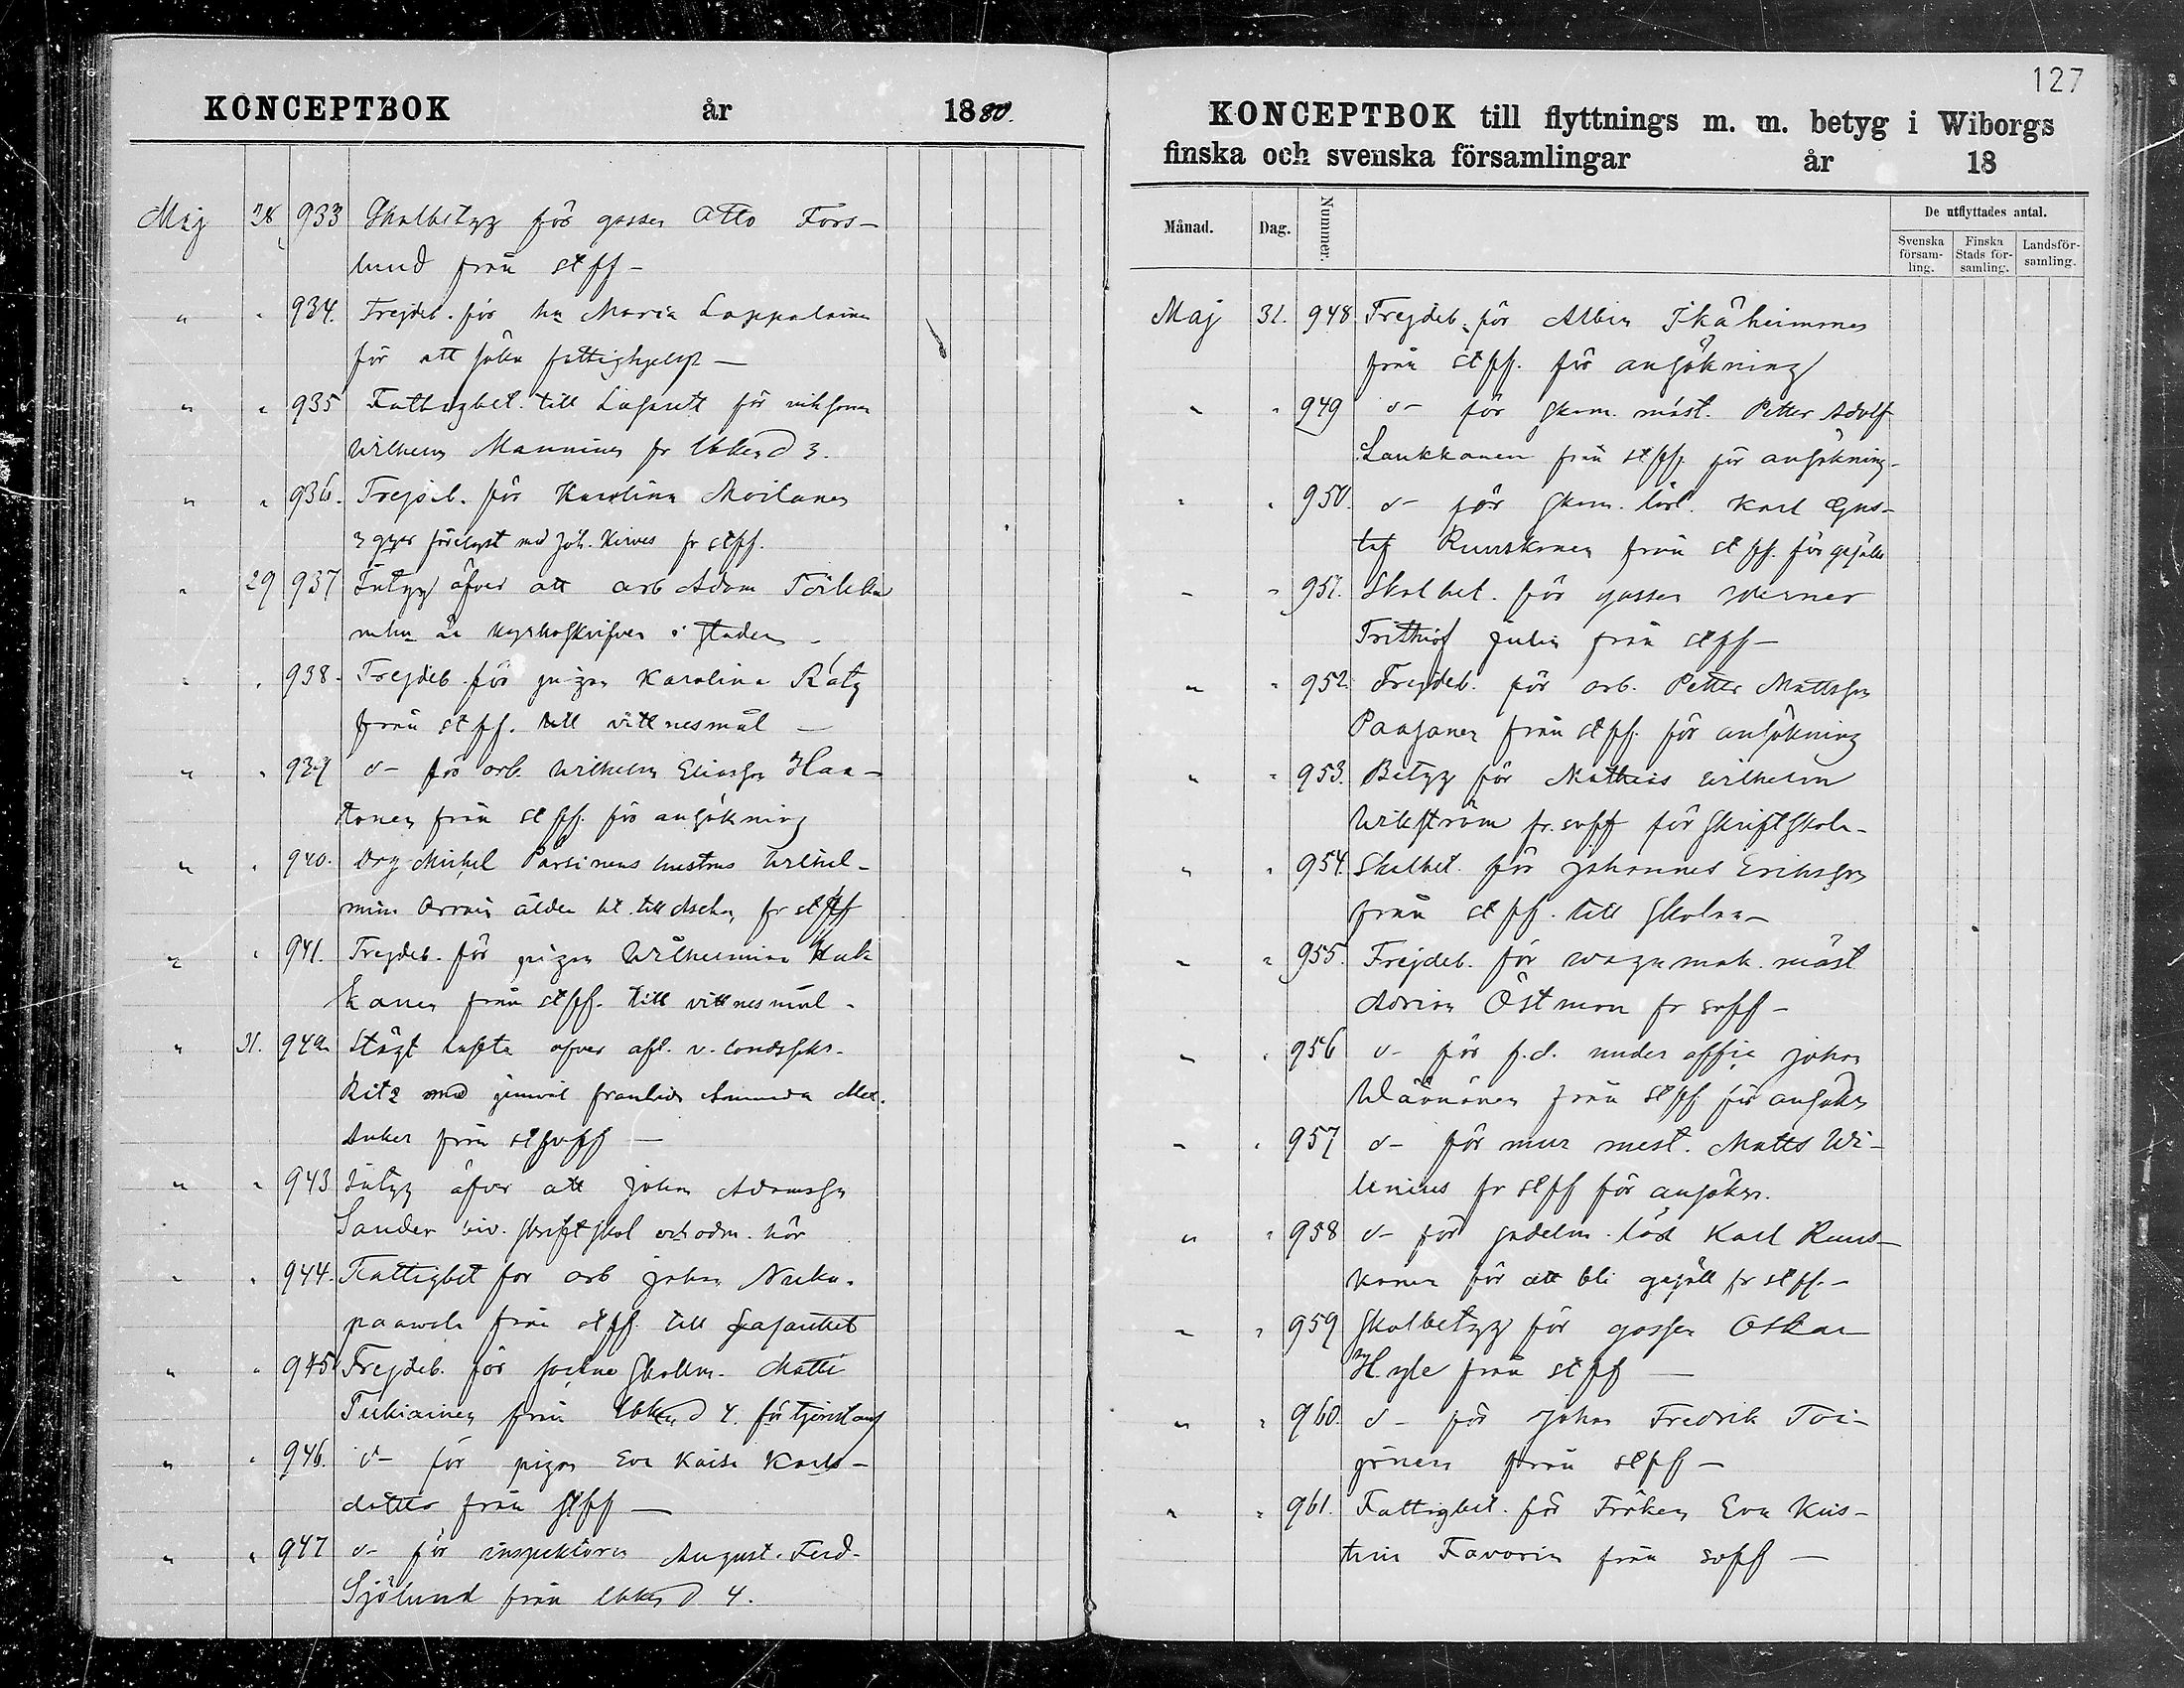 KONCEPTBOK år 1880.
Maj 28 933 Skolbetyg för gossen Otto Fors-
lund från stff -
" " 934. Frejdeb. för hu Maria Lappalainen
för att söka fattighjelp -
" " 935 Fattigbet. till Lasarett för
Wilhelm Manninen fr lbken d 3.
" " 936. Frejdeb. för Karolina Moilanen
3 ggr förelyst med Joh. Kirves fr stff.
" 29 937 Intyg öfver att arb Adam
är kyrkoskrifven i staden -
" " 938. Frejdeb. för pigan Karolina Rätz
från stff. till vittnesmål -
" " 939 d- för arb. Wilhelm Eliasson Haa-
tonen från stff. för ansökning
" " 940. Drg Michel Pärsinens hustrus Wilhel-
mina ålder bet. till fr stff
" " 941. Frejdeb. för pigan Wilhelmina Kuk
kanen från stff. till vittnesmål -
" 31. 942. öfver
Ritz med Amanda
från
" " 943 Intyg öfver att Johan Adamsson
Sander biv. skriftskol och adm. här
" " 944. Fattigbet för arb Johan
från stff. till Lasarettet
" " 945 Frejdeb. för sockne skollär. Matti
Tukiainen från lbken d 4. för
" " 946. d- för pigan Eva Kaisa Karls-
dotter från stff -
" " 947 d- för inspektoren August. Ferd-
Sjölund från lbken d 4.
127
KONCEPTBOK till flyttnings m. m. betyg i Wiborgs
finska och svenska församlingar år 18
Månad. Dag. Nummer. De utflyttades antal.
Svenska försam-ling. Finska Stads för-samling. Landsför-samling.
Maj 31. 948 Frejdeb. för Albin Ikäheimonen
från stff. för ansökning
" " 949 d- för skom. mäst. Petter Adolf
Laukkanen från stff. för ansökning -
" " 950. d- för skom. lärl. Karl Gus-
taf Ruuskanen från stff. för gesäll
" " 951. Skolbet. för gossen Werner
Frithiof Julin från stff -
" " 952. Frejdeb. för arb. Petter Mattsson
Paajanen från stff. för ansökning
" " 953. Betyg för Mathias Wilhelm
Wikström fr. svff för skriftskola -
" " 954. Skolbet. för Johannes Eriksson
från stff. till skolan -
" " 955. Frejdeb. för wagnmak. mäst
Adrian Östman fr svff -
" " 956 d- för f.d. under offic Johan
Väänänen från stff för ansökn
" " 957 d- för mur mest. Matts Wi-
lenius fr stff för ansökn.
" " 958 d- för sadelm. lärl Karl Ruus-
kanen för att bli gesäll fr stff. -
" " 959 Skolbetyg för gossen Oskar
Hyle från stff -
" " 960. d- för Johan Fredrik Toi-
jonen från stff -
" " 961. Fattigbet. för Fröken Eva Kris-
tina Favorin från svff -